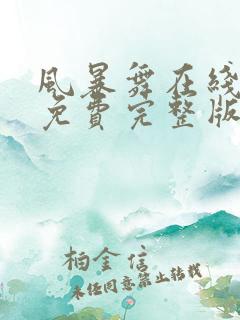 風暴舞在綫
免費完整版
柏金信
未经同意禁止转载